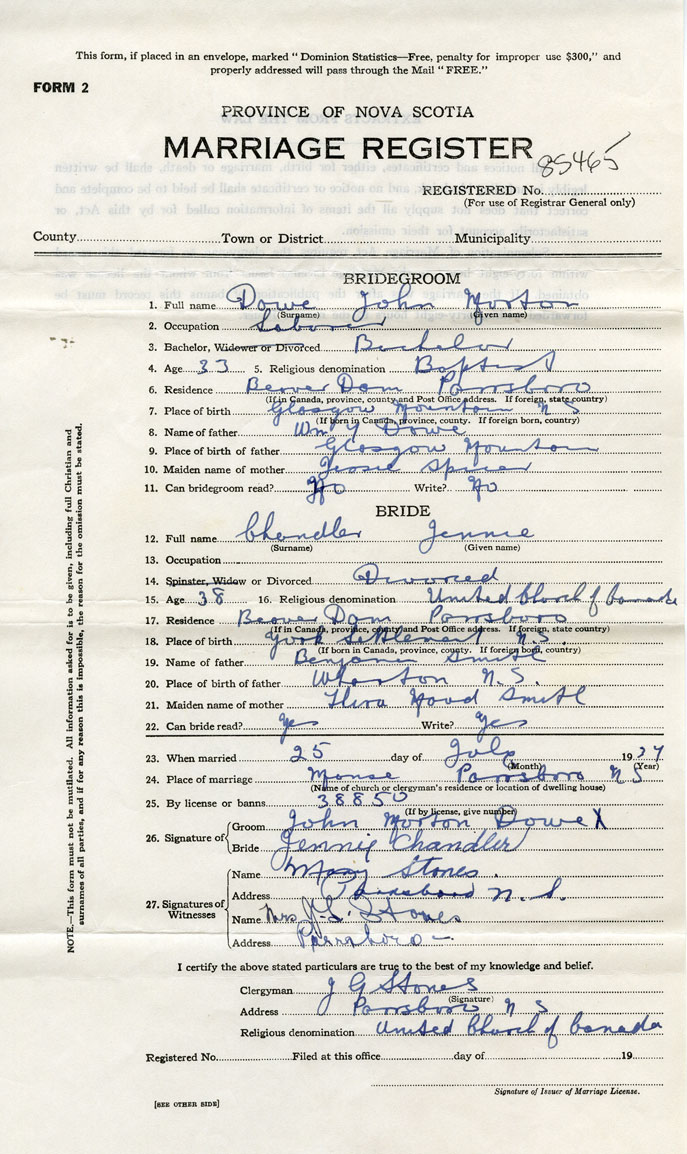 This form, if placed in an envelope, marked " Dominion Statistics—Free, penalty for improper use $300," and
properly addressed will pass through the Mail " FREE."
FORM 2
PROVINCE OF NOVA SCOTIA
MARRIAGE REGISTER
85465
REGISTERED No.
(For use of Registrar General only)
County Town or District Municipality
BRIDEGROOM
1. Full name Dowe John Morton
(Surname) (Given name)
2. Occupation Laborer
3. Bachelor, Widower or Divorced Bachelor
4. Age 33 5. Religious denomination Baptist
6. Residence Beaver Dam Parrsboro
(If in Canada, province, county and Post Office address. If foreign, state country)
7. Place of birth Glasgow Mountain N S
(If born in Canada, province, county. If foreign born, country)
8. Name of father Wm Y Dowe
9. Place of birth of father Glasgow Mountain
10. Maiden name of mother Jessie Spicer
11. Can bridegroom read? No Write? No
BRIDE
12. Full name Chandler Jennie
(Surname) (Given name)
13. Occupation
14. Spinster, Widow or Divorced Divorced
15. Age 38 16. Religious denomination United Church of Canada
17. Residence Beaver Dam Parrsboro
(If in Canada, province, county and Post Office address. If foreign, state country)
18. Place of birth York Settlement N.S.
(If born in Canada, province, county. If foreign born, country)
19. Name of father Benjamin Smith
20. Place of birth of father Wharton N.S.
21. Maiden name of mother Hood Smith
22. Can bride read? Yes Write? Yes
23. When married 25 day of July 1937
(Month) (Year)
24. Place of marriage Manse Parrsboro N S
(Name of church or clergyman's residence or location of dwelling house)
25. By license or banns 38850
(If by license, give number)
26. Signature of
Groom John Morton Dowe X
Bride Jennie Chandler
27. Signatures of Witnesses
Name Mary Stones.
Address Parrsboro N.S.
Name Mrs J. G. Stones
Address Parrsboro —
I certify the above stated particulars are true to the best of my knowledge and belief.
Clergyman J G Stones
(Signature)
Address Parrsboro N S
Religious denomination United Church of Canada
Registered No. Filed at this office day of 19
Signature of Issuer of Marriage License.
[SEE OTHER SIDE]
NOTE.—This form must not be mutilated. All information asked for is to be given, including full Christian and
surnames of all parties, and if for any reason this is impossible, the reason for the omission must be stated.